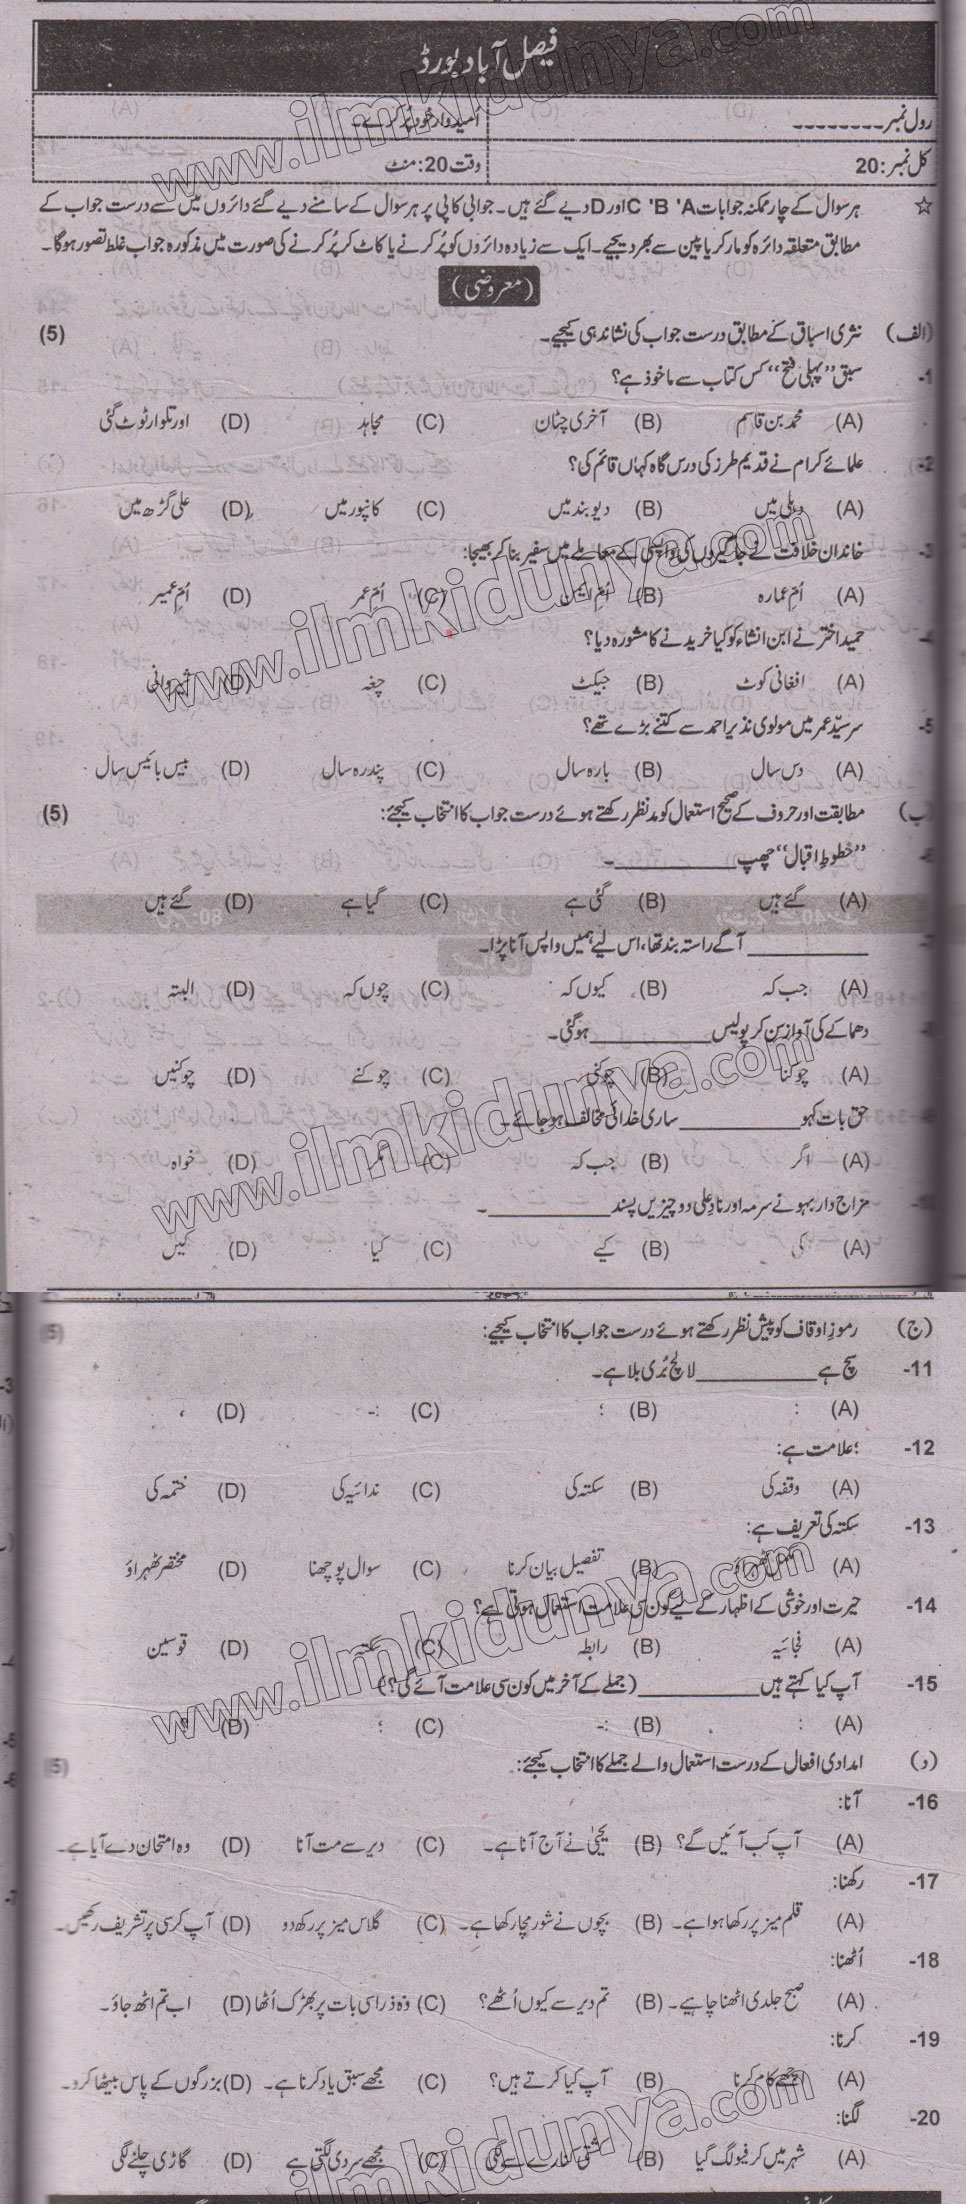 فیصل آباد بورڈ
رول نمبر۔۔۔۔۔۔۔۔ امیدوار خود پُر کرے۔
کل نمبر: 20 وقت 20: منٹ
☆ ہر سوال کے چار ممکنہ جوابات A' B' C اور D دیے گئے ہیں۔ جوابی کاپی پر ہر سوال کے سامنے دیے گئے دائروں میں سے درست جواب کے
مطابق متعلقہ دائرہ کو مارکر یا پین سے بھر دیجیے۔ ایک سے زیادہ دائروں کو پُر کرنے یا کاٹ کر پُر کرنے کی صورت میں مذکورہ جواب غلط تصور ہوگا۔
(معروضی)
(الف) نثری اسباق کے مطابق درست جواب کی نشاندہی کیجیے۔ (5)
1- سبق ”پہلی فتح“ کس کتاب سے ماخوذ ہے؟
(A) محمد بن قاسم (B) آخری چٹان (C) مجاہد (D) اور تلوار ٹوٹ گئی
2- علمائے کرام نے قدیم طرز کی درس گاہ کہاں قائم کی؟
(A) دہلی میں (B) دیوبند میں (C) کانپور میں (D) علی گڑھ میں
3- خاندان خلافت نے جاگیروں کی واپسی کے معاملے میں سفیر بنا کر بھیجا:
(A) اُمِ عمارہ (B) اُمِ ایمن (C) اُمِ عمر (D) اُمِ عمیر
4- حمید اختر نے ابن انشاء کو کیا خریدنے کا مشورہ دیا؟
(A) افغانی کوٹ (B) جیکٹ (C) چغہ (D) شیروانی
5- سرسیّد عمر میں مولوی نذیر احمد سے کتنے بڑے تھے؟
(A) دس سال (B) بارہ سال (C) پندرہ سال (D) بیس بائیس سال
(ب) مطابقت اور حروف کے صحیح استعمال کو مدنظر رکھتے ہوئے درست جواب کا انتخاب کیجئے: (5)
6- ”خطوطِ اقبال“ چھپ __________ ۔
(A) گئے ہیں (B) گئی ہے (C) گیا ہے (D) گئے ہیں
7- __________ آگے راستہ بند تھا، اس لیے ہمیں واپس آنا پڑا۔
(A) جب کہ (B) کیوں کہ (C) چوں کہ (D) البتہ
8- دھماکے کی آواز سن کر پولیس __________ ہوگئی۔
(A) چوکنا (B) چوکنی (C) چوکنے (D) چوکنیں
9- حق بات کہو __________ ساری خدائی مخالف ہوجائے۔
(A) اگر (B) جب کہ (C) مگر (D) خواہ
10- مزاج دار بہو نے سرمہ اور نادِ علی دو چیزیں پسند __________ ۔
(A) کی (B) کیے (C) کیا (D) کیں
(ج) رموزِ اوقاف کو پیش نظر رکھتے ہوئے درست جواب کا انتخاب کیجیے: (5)
11- سچ ہے __________ لالچ بُری بلا ہے۔
(A) : (B) ؛ (C) :- (D) ،
12- ؛ علامت ہے:
(A) وقفہ کی (B) سکتہ کی (C) ندائیہ کی (D) ختمہ کی
13- سکتہ کی تعریف ہے:
(A) ٹھہراؤ (B) تفصیل بیان کرنا (C) سوال پوچھنا (D) مختصر ٹھہراؤ
14- حیرت اور خوشی کے اظہار کے لیے کون سی علامت استعمال ہوتی ہے؟
(A) فجائیہ (B) رابطہ (C) سکتہ (D) قوسین
15- آپ کیا کہتے ہیں __________ (جملے کے آخر میں کون سی علامت آئے گی؟)
(A) : (B) :- (C) ؛ (D) ؟
(د) امدادی افعال کے درست استعمال والے جملے کا انتخاب کیجئے: (5)
16- آنا:
(A) آپ کب آئیں گے؟ (B) یحییٰ نے آج آنا ہے۔ (C) دیر سے مت آنا (D) وہ امتحان دے آیا ہے۔
17- رکھنا:
(A) قلم میز پر رکھا ہوا ہے۔ (B) بچوں نے شور مچا رکھا ہے۔ (C) گلاس میز پر رکھ دو (D) آپ کرسی پر تشریف رکھیں۔
18- اُٹھنا:
(A) صبح جلدی اٹھنا چاہیے۔ (B) تم دیر سے کیوں اُٹھے؟ (C) وہ ذرا سی بات پر بھڑک اُٹھا (D) اب تم اٹھ جاؤ۔
19- کرنا:
(A) اچھے کام کرنا (B) آپ کیا کرتے ہیں؟ (C) مجھے سبق یاد کرنا ہے۔ (D) بزرگوں کے پاس بیٹھا کرو۔
20- لگنا:
(A) شہر میں کرفیو لگ گیا (B) کشتی کنارے سے لگی (C) مجھے سردی لگتی ہے (D) گاڑی چلنے لگی
www.ilmkidunya.com
www.ilmkidunya.com
www.ilmkidunya.com
www.ilmkidunya.com
ilmkidunya.com